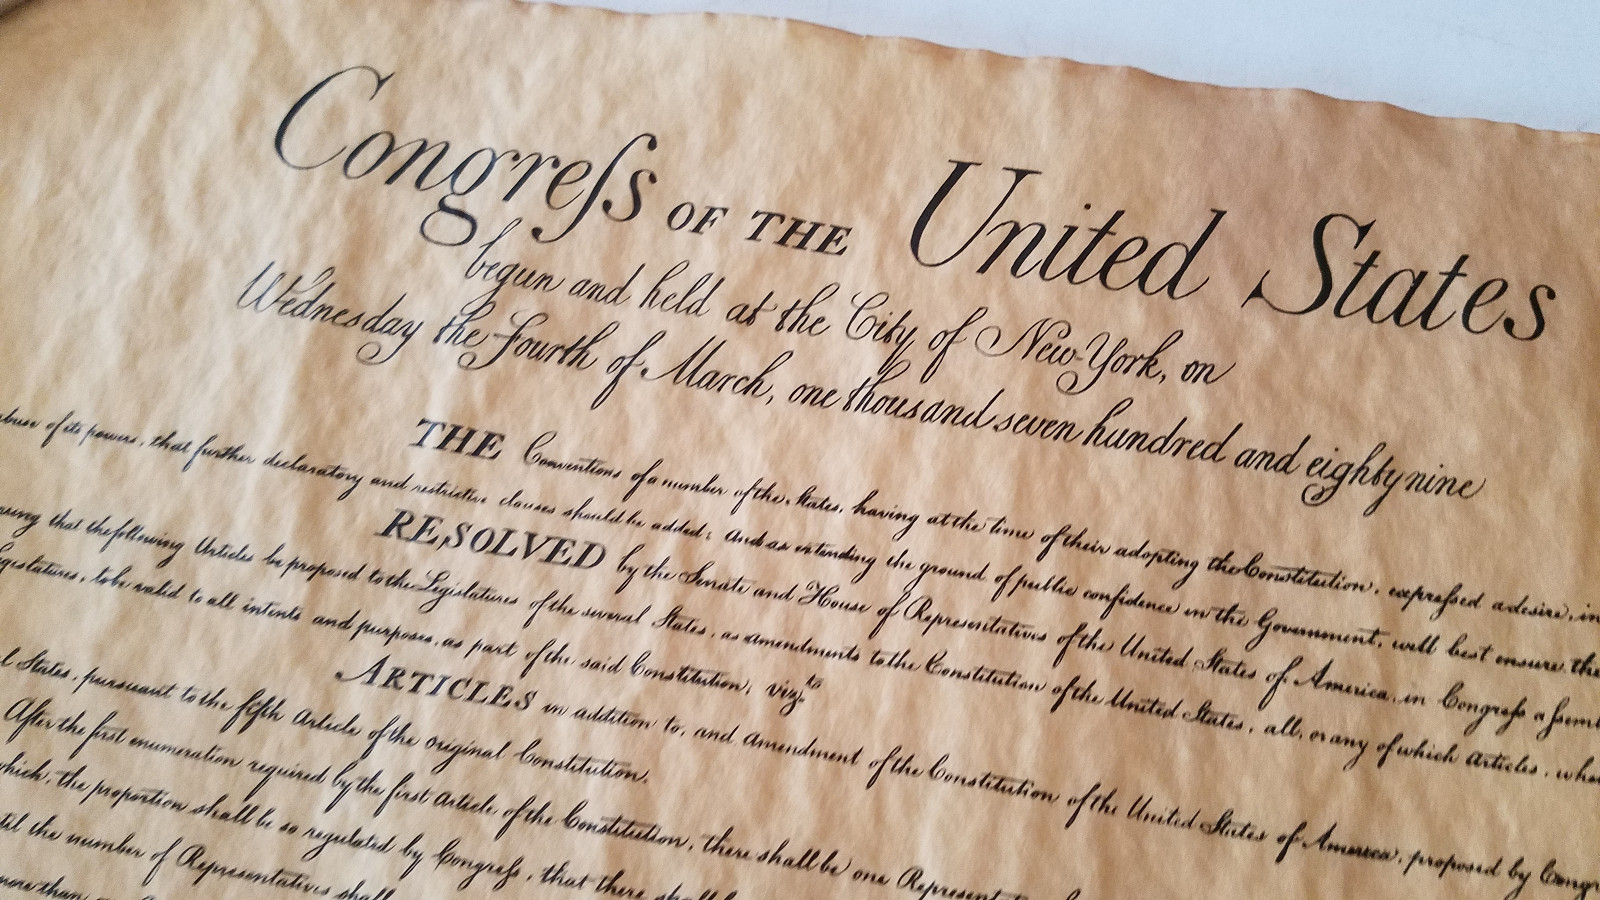 Congreſs OF THE United States
begun and held at the City of New-York, on
Wednesday the Fourth of March, one thousand seven hundred and eighty nine
THE Conventions of a number of the States, having at the time of their adopting the Constitution, expreſsed a desire, in
abuse of its powers, that further declaratory and restrictive clauses should be added: And as extending the ground of public confidence in the Government, will best ensure the
RESOLVED by the Senate and House of Representatives of the United States of America, in Congreſs aſsemb
that the following Articles be proposed to the Legislatures of the several States, as amendments to the Constitution of the United States, all, or any of which Articles, when
Legislatures, to be valid to all intents and purposes, as part of the said Constitution; vizt
ARTICLES in addition to, and Amendment of the Constitution of the United States of America, proposed by Congr
l States, pursuant to the fifth Article of the original Constitution.
After the first enumeration required by the first Article of the Constitution, there shall be one Represent
which, the proportion shall be so regulated by Congreſs, that there shall b
til the number of Representatives shall
more than